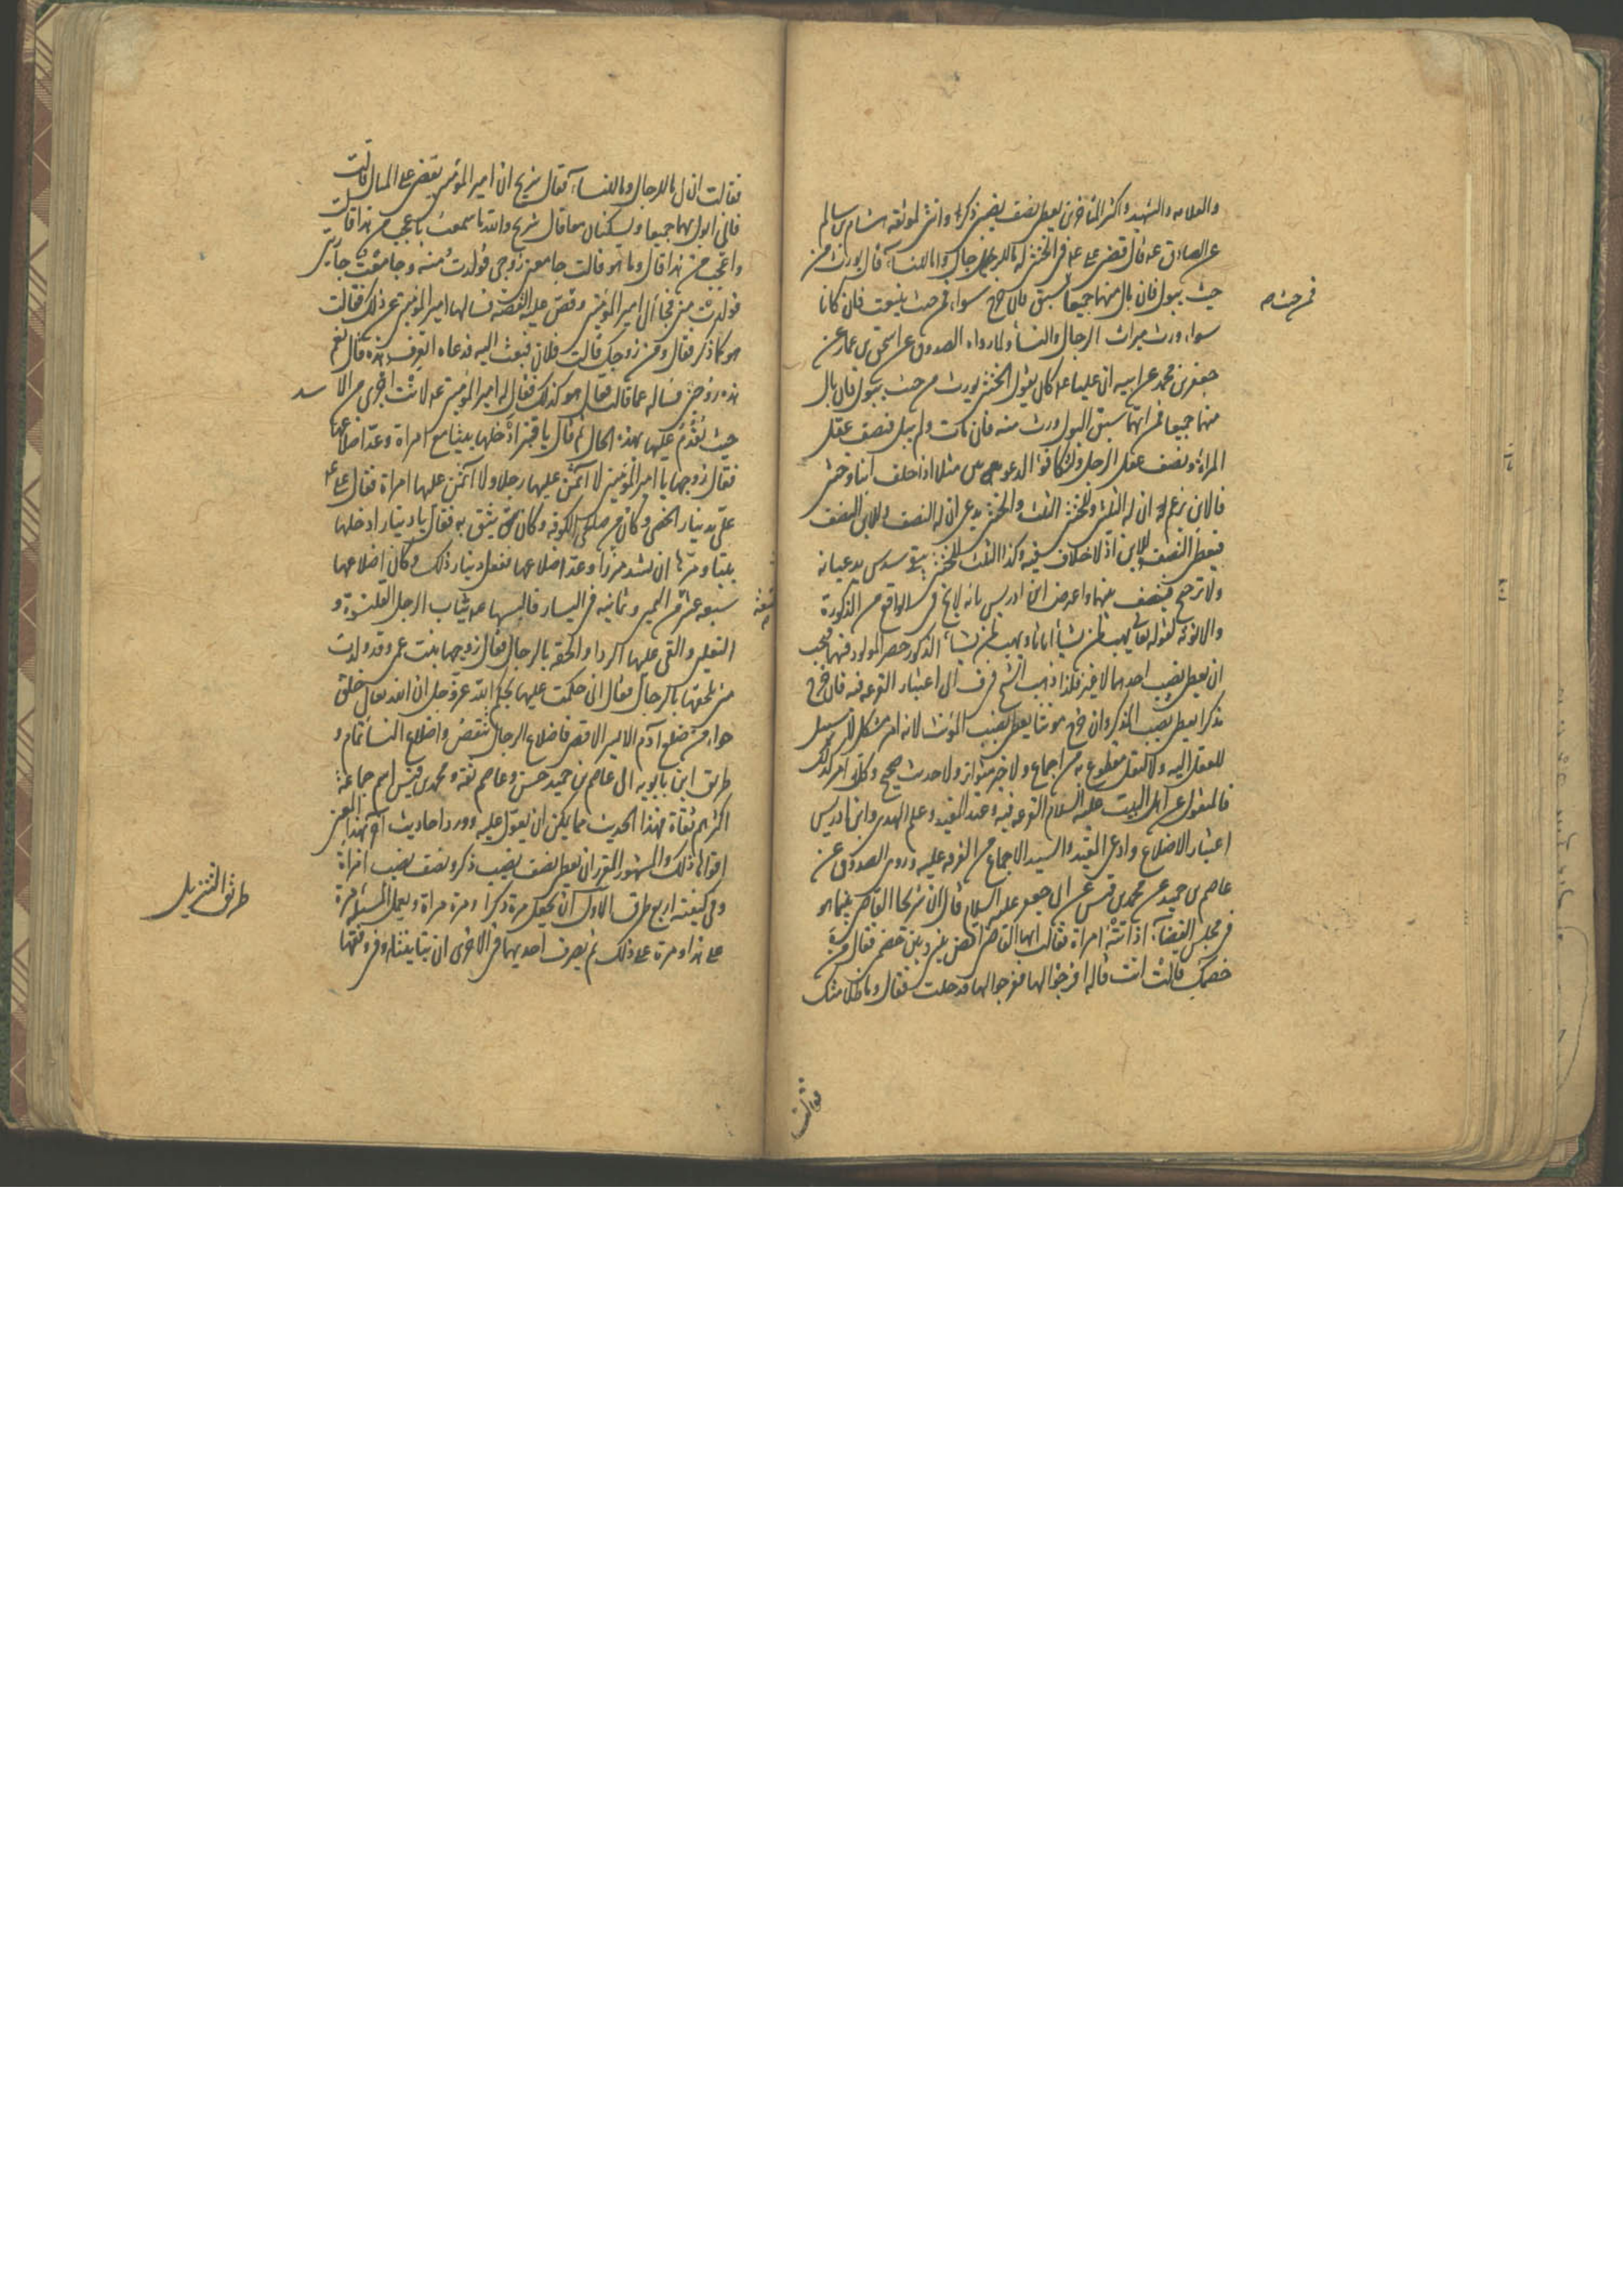 والعلامه والشهيد واكثر المتأخرين يعطى نصف نصيبى ذكر وانثى لموثقه هشام بن سالم
عن الصادق عه قال قضى على عه فى الخنثى له ما للرجال وله ما للنساء قال يورث من
حيث يبول فان بال منهما جميعا فمن حيث سبق فان خرج سواء فمن حيث ينبعث فان كانا
سواء ورث ميراث الرجال والنساء ولما رواه الصدوق عن اسحق بن عمار عن
جعفر بن محمد عن ابيه ان عليا عه كان يقول الخنثى يورث من حيث يبول فان بال
منهما جميعا فمن ايهما سبق البول ورث منه فان مات ولم يبل فنصف عقل
المراة ونصف عقل الرجل ولتكافؤ الدعويين مثلا اذا خلف ابنا وخنثى
فالابن يزعم ان له الثلثين وللخنثى الثلث والخنثى يدعى ان له النصف وللابن النصف
فيعطى النصف للابن اذ لا خلاف فيه وكذا الثلث للخنثى يبقى سدس يدعيانه
ولا ترجيح فينصف بينهما واعترض ابن ادريس بانه لا يخ فى الواقع من الذكورة
والانوثة لقوله تعالى يهب لمن يشاء اناثا ويهب لمن يشاء الذكور حصر المولود فيهما فيجب
ان يعطى نصيب احدهما لا غير فلذا ذهب الشيخ فى ف الى اعتبار القرعه فيه فان خرج
مذكرا يعطى نصيب المذكر وان خرج مونثا يعطى نصيب المؤنث لانه امر مشكل لا سبيل
للعقل اليه ولا لنقل مقطوع به من اجماع ولا خبر متواتر ولا حديث صحيح وكل امر كذلك
فالمنقول عن اهل البيت عليهم السلام القرعه فيه وعند المفيد وعلم الهدى وابن ادريس
اعتبار الاضلاع وادعى المفيد والسيد الاجماع من الفرقه عليه وروى الصدوق عن
عاصم بن حميد عن محمد بن قيس عن ابى جعفر عليه السلام قال ان شريحا القاضى بينما هو
فى مجلس القضاء اذ اتته امراة فقالت ايها القاضى اقض بينى وبين خصمى فقال ومن
خصمك قالت انت قال افرجوا لها فافرجوا لها فدخلت فقال وما ظلامتك
فمن حيث صح
فقالت
فقالت ان لى ما للرجال وما للنساء فقال شريح ان امير المؤمنين يقضى على المبال قالت
فانى ابول بهما جميعا ويسكنان معا قال شريح والله ما سمعت باعجب من هذا قالت
واعجب من هذا قال وما هو قالت جامعنى زوجى فولدت منه وجامعت جاريتى
فولدت منى فجاء الى امير المؤمنين وقص عليه القصة فسالها امير المؤمنين عن ذلك فقالت
هو كما ذكر فقال ومن زوجك قالت فلان فبعث اليه فدعاه اتعرف هذه قال نعم
هذه زوجتى فساله عما قالت فقال هو كذلك فقال له امير المؤمنين عه لانت اجرى من الاسد
حيث تقدم عليها بهذه الحال ثم قال يا قنبر ادخلها بيتا مع امراة وعد اضلاعها
فقال زوجها يا امير المؤمنين لا آتمن عليها رجلا ولا آتمن عليها امراة فقال على عه
على بدينار الخصى وكان من صلحى الكوفه وكان يثق به فقال يا دينار ادخلها
بيتا ومرها ان تشد مئزرا وعد اضلاعها ففعل دينار ذلك وكان اضلاعها
سبعه عشر فى اليمين وثمانيه فى اليسار فالبسها عه ثياب الرجل القلنسوة و
تسعة صح
النعلين والقى عليها الرداء والحقه بالرجال فقال زوجها بنت عمى وقد ولدت
منى تلحقها بالرجال فقال انى حكمت عليها بحكم الله عز وجل ان الله تعالى خلق
حواء من ضلع آدم الايسر الاقصر فاضلاع الرجال تنقص واضلاع النساء تمام و
طريق ابن بابويه الى عاصم بن حميد حسن وعاصم ثقة ومحمد بن قيس اسم جماعة
اكثرهم ثقاة فهذا الحديث مما يمكن ان يعول عليه وورد احاديث اخر بهذا المعنى
اقول ذلك والمشهور ان يعطى نصف نصيب ذكر ونصف نصيب امراة
وفى كيفيته اربع طرق الاول ان يجعل مرة ذكرا ومرة امراة ويعمل المسئلة مرة
على هذا ومرة على ذلك ثم يضرب احديهما فى الاخرى ان تباينتا او فى وفقها
طريق التنزيل